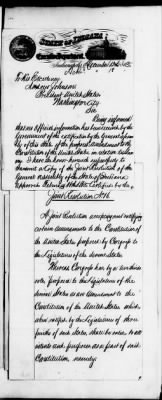 STATE OF INDIANA
Executive Department
Indianapolis, December
To His Excellency
Andrew Johnson
President United States
Washington City
Sir
Being informed
that no official information has been received by the
Government of the ratification by the General Assem-
bly of this state of the proposed amendment to the
Constitution of the United States in relation to slave-
ry I have the honor herewith respectfully to
transmit a Copy of the Joint Resolution of the
General Assembly of the State of Indiana
Approved February certified by the
Joint Resolution No
A Joint Resolution accepting and ratifying
certain amendments to the Constitution of
the United States, proposed by Congress to
the Legislatures of the several States.
Whereas Congress has by a two thirds
vote proposed to the Legislatures of the
several States as an amendment to the
Constitution of the United States which
when ratified by the Legislatures of three
fourths of said States, shall be valid, to all
intents and purposes as a part of said
Constitution, namely: